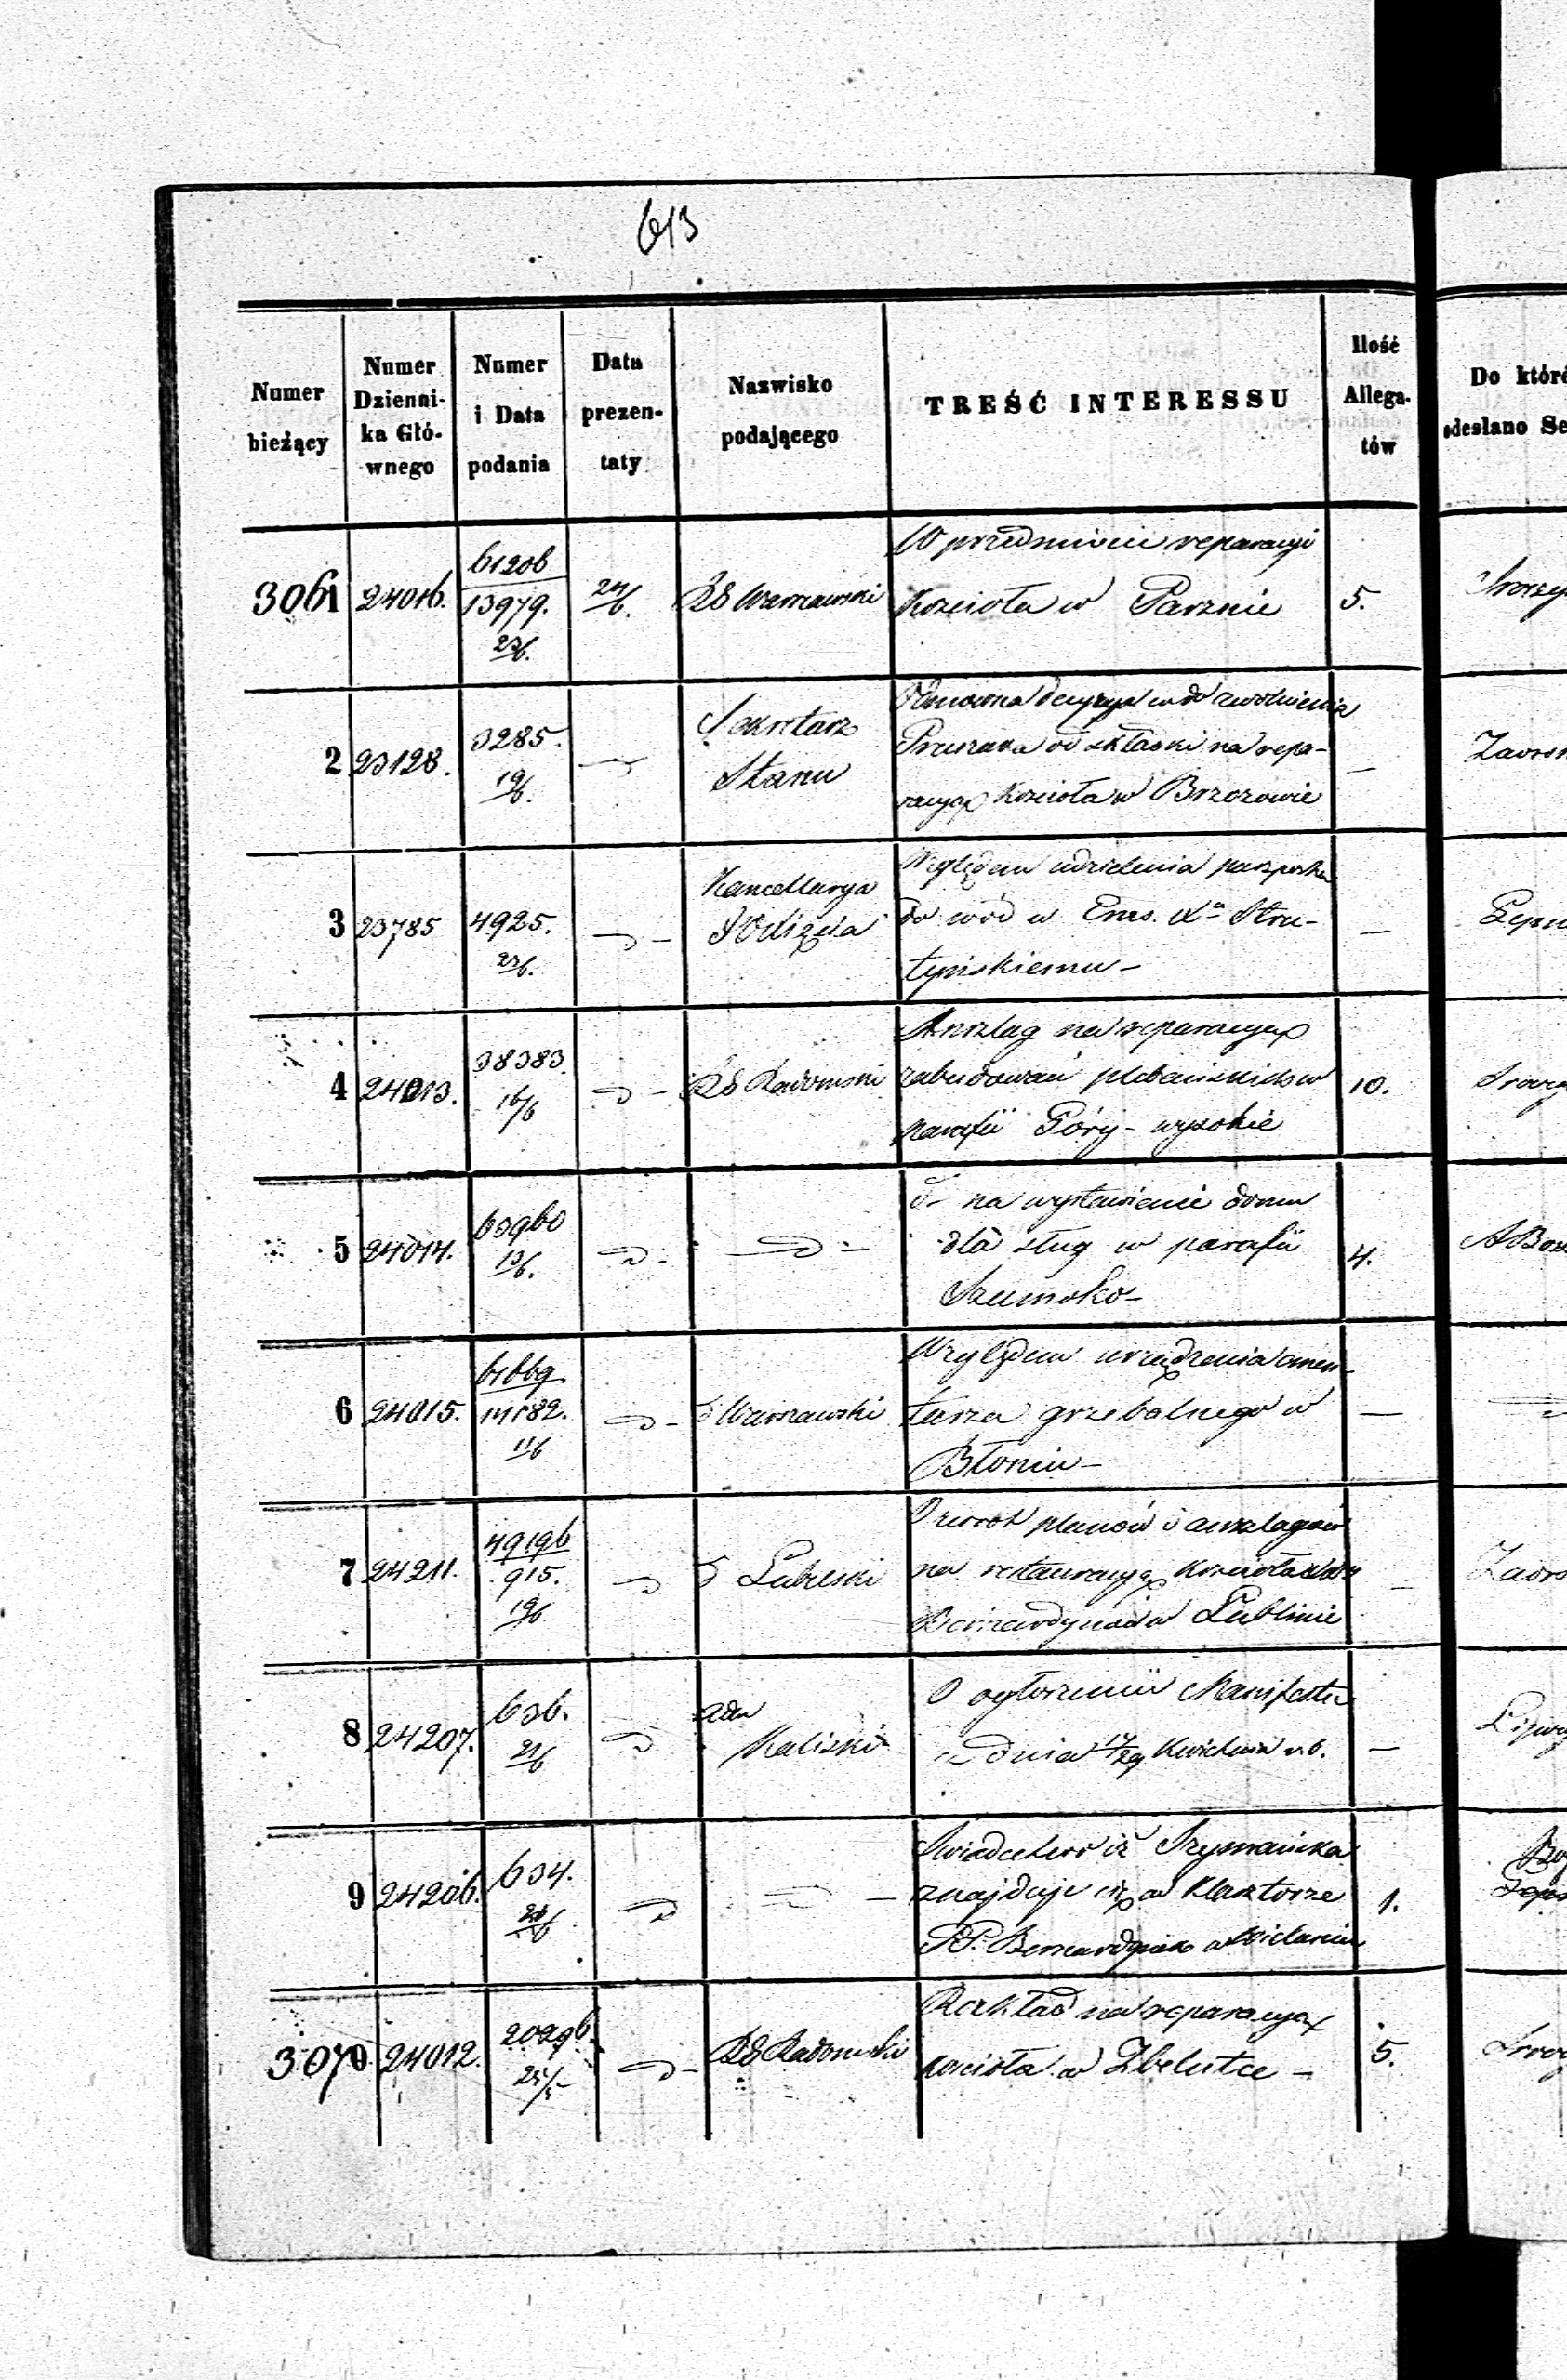 613
Numer bieżący
Numer Dzienni- ka Głó- wnego
Numer i Data podania
Data prezen- taty
Nazwisko podającego
TREŚĆ INTERESSU
Ilość Allega- tów
Do któré
odesłano Se
3061 24016. 61206 13979. 23/6. 24/6. RG Warszawski
W przedmiocie reparacyi
Kościoła w Parznie
5.
2 23128. 3285. 19/6. Sekretarz Stanu
Odmowna decyzya do zwolnienia
od składki na repa-
racyą Kościoła w Brzozowie
—
3 23785 4925. 23/6. Kancellarya
Względem udzielenia paszportu
do wód w Ems. Xu Stru-
tyńskiemu —
—
4 24013. 38383. 16/6 RG Radomski
Anszlag na reparacyą
zabudowań plebańskich w
parafii Góry-wysokie
10.
5 24014. 63960 13/6.
na wystawienie domu
dla sług w parafii
Szumsko —
4.
6 24015. 61669 14182. 11/6 Warszawski
Względem urządzenia cmen-
tarza grzebalnego w
Błoniu —
—
7 24211. 49196 915. 19/6 Lubelski
Zwrot planów i anszlagów
na restauracyą Kościoła
Bernardynów w Lublinie
—
8 24207. 636. 21/6 Adm Kaliski
O ogłoszeniu Manifestu
z dnia 17/29 Kwietnia r.b.
—
9 24206. 634.
Świadectwo iż Szymańska
znajduje się w Klasztorze
PP. Bernardynek w Wieluniu
1.
3070 24012. 20296. 25/5 RG Radomski
Rozkład na reparacyą
kościoła w Zbelutce —
5.